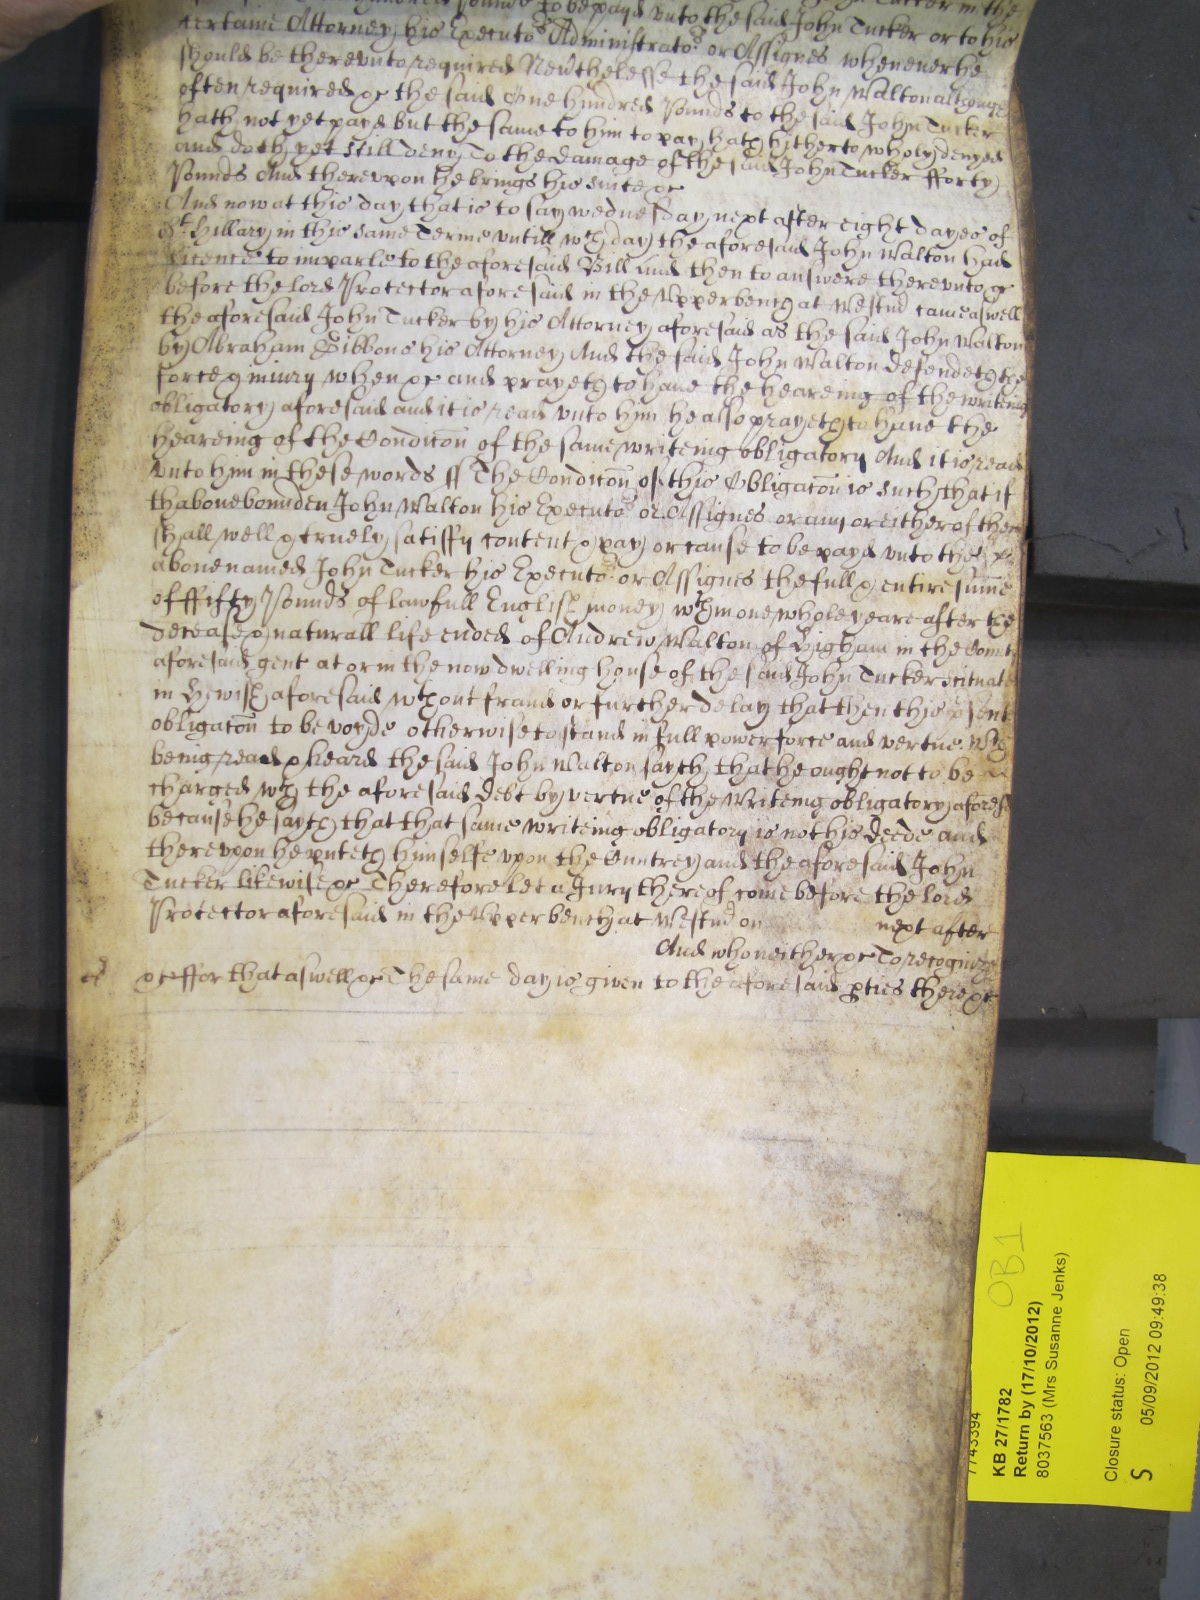 hundred Pounds to be payd unto the said John Tucker or to his
certaine Attorney his Executors Administrators or Assignes whenever he
should be thereunto required Neverthelesse the said John Walton although
often required &c the said One hundred Pounds to the said John Tucker
hath not yet payd but the same to him to pay hath hitherto wholy denyed
and doth yet still deny To the damage of the said John Tucker fforty
Pounds And thereupon he brings his suite &c
And now at this day that is to say wednesday next after eight dayes of
St. Hillary in this same Terme untill wch day the aforesaid John Walton had
licence to imparle to the aforesaid Bill and then to answere thereunto &c
before the lord Protector aforesaid in the Upper bench at Westmr came aswell
the aforesaid John Tucker by his Attorney aforesaid as the said John Walton
by Abraham Gibbons his Attorney And the said John Walton defendeth the
force & iniury when &c and prayeth to have the heareing of the writeing
obligatory aforesaid and it is read unto him he also prayeth to have the
heareing of the Condicon of the same writeing obligatory And it is read
unto him in these words ss The Condicon of this Obligacon is such that if
thabovebounden John Walton his Executors or Assignes or any or either of them
shall well & truely satisfy content & pay or cause to be payd unto the
abovenamed John Tucker his Executors or Assignes the full & entire summe
of ffifty Pounds of lawfull English money wthin one whole yeare after the
decease & naturall life ended of Andrew Walton of Bigham in the Count
aforesaid gent at or in the now dwelling house of the said John Tucker scituate
in aforesaid wthout fraud or further delay that then this psent
obligacon to be voyde otherwise to stand in full power force and vertue Wch
being read & heard the said John Walton sayth that he ought not to be
charged wth the aforesaid debt by vertue of the writeing obligatory aforesd
because he sayth that that same writeing obligatory is not his deede and
thereupon he putteth himselfe upon the Cuntrey and the aforesaid John
Tucker likewise &c Therefore let a Jury thereof come before the lord
Protector aforesaid in the Upper bench at Westmr on next after
And who neither &c To recognize
&c ffor that aswell &c The same day is given to the aforesaid pties there &c
7743394
KB 27/1782
OB1
Return by (17/10/2012)
8037563 (Mrs Susanne Jenks)
Closure status: Open
S
05/09/2012 09:49:38